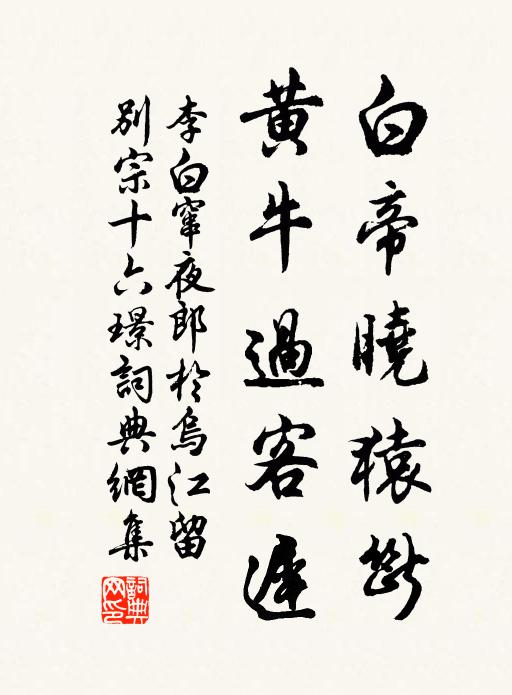 白帝曉猿斷
黃牛過客遲
李白竄夜郎於烏江留
別宗十六璟詞典網集
詞典網印